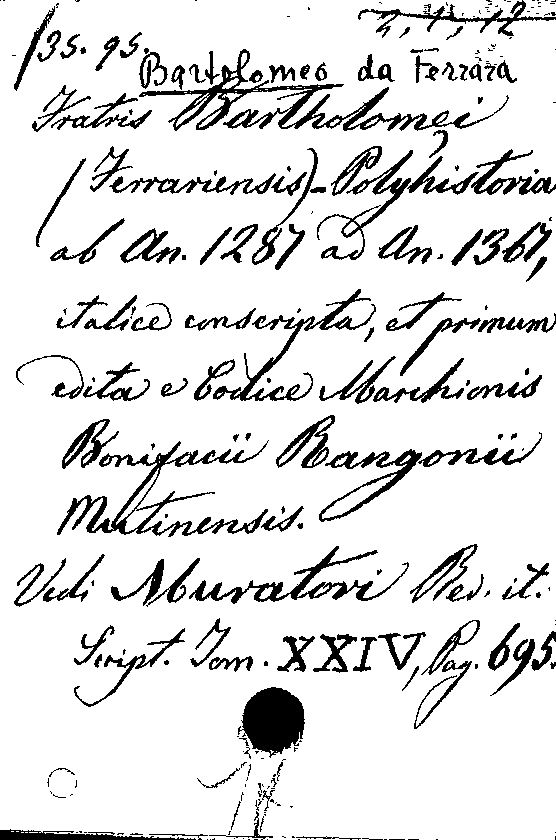 2, 1, 12
135. 95.
Bartolomeo da Ferrara
Fratris Bartholomei
(Ferrariensis) - Polyhistoria
ab An. 1287 ad An. 1367,
italice conscripta, et primum
edita e Codice Marchionis
Bonifacii Rangonii
Mutinensis.
Vedi Muratori Rer. it.
Script. Tom. XXIV, Pag. 695.